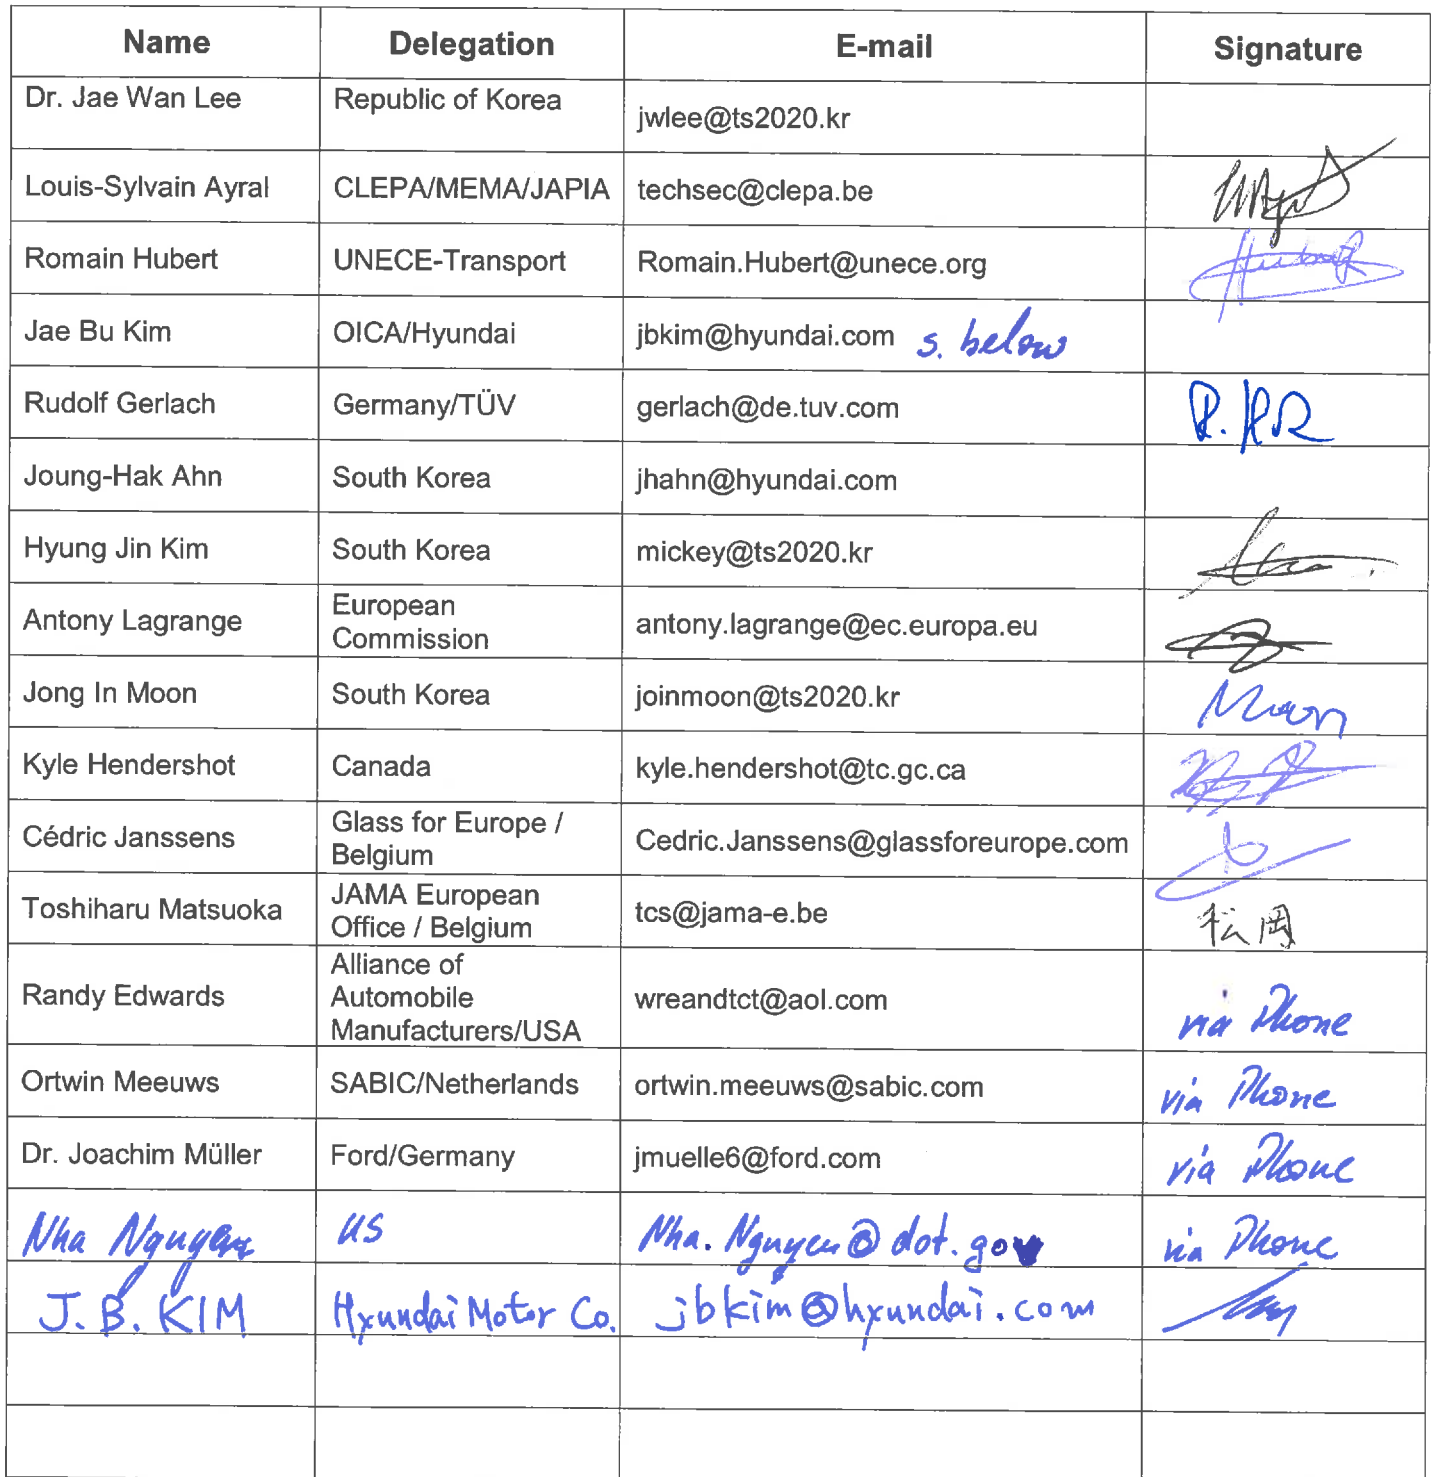 Name Delegation E-mail Signature
Dr. Jae Wan Lee Republic of Korea jwlee@ts2020.kr
Louis-Sylvain Ayral CLEPA/MEMA/JAPIA techsec@clepa.be
Romain Hubert UNECE-Transport Romain.Hubert@unece.org Hubert
Jae Bu Kim OICA/Hyundai jbkim@hyundai.com s. below
Rudolf Gerlach Germany/TÜV gerlach@de.tuv.com
Joung-Hak Ahn South Korea jhahn@hyundai.com
Hyung Jin Kim South Korea mickey@ts2020.kr
Antony Lagrange European
Commission antony.lagrange@ec.europa.eu
Jong In Moon South Korea joinmoon@ts2020.kr Moon
Kyle Hendershot Canada kyle.hendershot@tc.gc.ca
Cédric Janssens Glass for Europe /
Belgium Cedric.Janssens@glassforeurope.com
Toshiharu Matsuoka JAMA European
Office / Belgium tcs@jama-e.be 松岡
Randy Edwards Alliance of
Automobile
Manufacturers/USA wreandtct@aol.com via Phone
Ortwin Meeuws SABIC/Netherlands ortwin.meeuws@sabic.com via Phone
Dr. Joachim Müller Ford/Germany jmuelle6@ford.com via Phone
Nha Nguyen US Nha.Nguyen@dot.gov via Phone
J.B. KIM Hyundai Motor Co. jbkim@hyundai.com